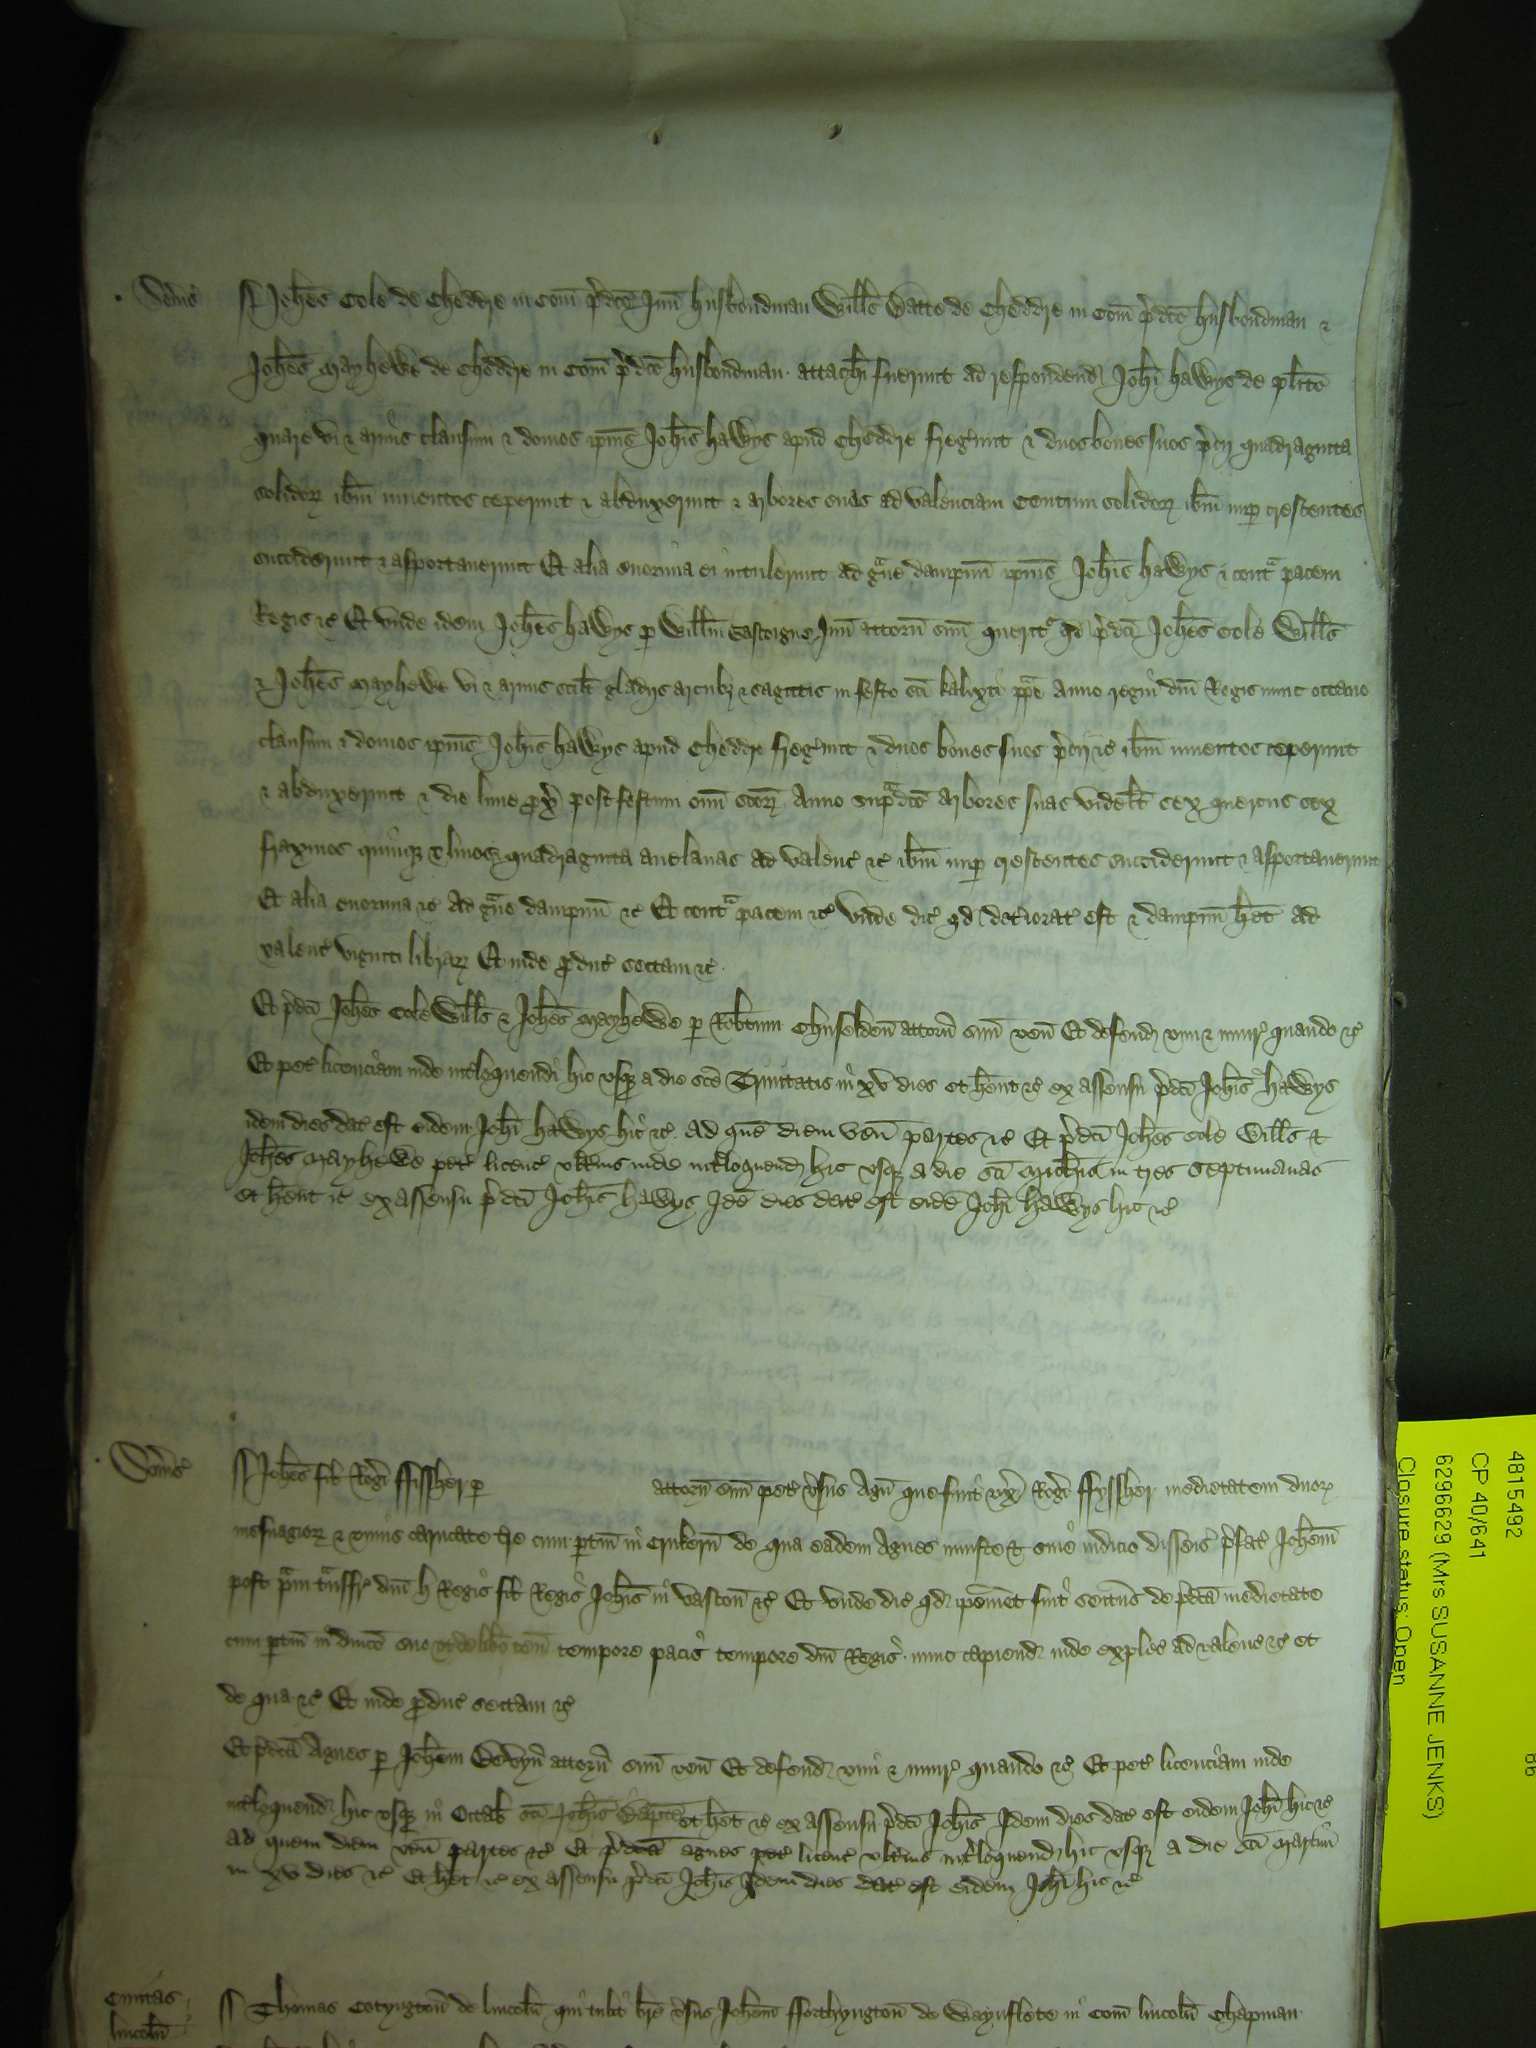 Som̃s Joh̃es Cole de Cheddre in Com̃ p̃dc̃o Jun̄ husbondman Will̃s Watte de Cheddre in Com̃ p̃dc̃o husbondman &
Joh̃es Mayhewe de Cheddre in Com̃ p̃dc̃o husbondman attach̃ fuerunt ad respondend̃ Joh̃i Hawys de pl̃ito
quare vi & armis clausum & domos ip̃ius Joh̃is Hawys apud Cheddre freg̃unt & duos boues suos p̃cij quadraginta
solidoꝝ ib̃m inuentos ceperunt & abduxerunt & arbores suas ad valenciam Centum solidoꝝ ib̃m nup̱ crescentes
succiderunt & asportauerunt Et alia enormia ei intulerunt ad g̃ue dampnũ ip̃ius Joh̃is Hawys & cont̃ pacem
Regis &c̃ Et vnde idem Joh̃es Hawys p̱ Will̃m Gascoigne Jun̄ attorñ suũ querit̃ qd̃ p̃dc̃i Joh̃es Cole Will̃s
& Joh̃es Mayhewe vi & armis scil̃t gladijs arcubȝ & sagittis in festo sc̃i Kalixti p̃p̃e Anno regni dñi Regis nunc octauo
clausum & domos ip̃ius Joh̃is Hawys apud Cheddre freg̃unt & duos boues suos p̃cij &c̃ ib̃m inuentos ceperunt
& abduxerunt & die lune p̃x̃ post festum om̃i sc̃oꝝ Anno sup̃dc̃o arbores suas videl̃t sex quercus sex
fraxinos quinqȝ vlmos & quadraginta auelanas ad valenc̃ &c̃ ib̃m nup̱ crescentes succiderunt & asportauerunt
Et alia enormia &c̃ ad g̃ue dampnũ &c̃ Et cont̃ pacem &c̃ vnde dic̃ qd̃ det̃iorat̃ est & dampnũ h̃et ad
valenc̃ viginti libraꝝ Et inde p̃duc̃ sectam &c̃
Et p̃dc̃i Joh̃es Cole Will̃s & Joh̃es Mayhewe p̱ Rob̃tum Chuselden̄ attorñ suũ veñ Et defend̃ vim & iniur̃ quando &c̃
Et pet̃ licenciam inde int̃loquendi hic vsqȝ a die sc̃e Trinitatis in xv dies et h̃ent &c̃ ex assensu p̃dc̃i Joh̃is Hawys
idem dies dat̃ est eidem Joh̃i Hawys hic &c̃ Ad quẽ diem veñ partes &c̃ Et p̃dc̃i Joh̃es Cole Will̃s &
Joh̃es Mayhewe pet̃ licenc̃ vlt̃ius inde int̃loquend̃ hic vsqȝ a die sc̃i Mich̃is in tres septimanas
et h̃ent &c̃ ex assensu p̃dc̃i Joh̃is Hawys Idẽ dies dat̃ est eidẽ Joh̃i Hawys hic &c̃
Som̃s Joh̃es fil̃ Rog̃i ffissher p̱ attorñ suũ pet̃ ṽsus Agñ que fuit vx̃ Rog̃i ffyssher medietatem duoꝝ
mesuagioꝝ & vnius carucate t̃re cum p̱tiñ in Crukern̄ de qua eadem Agnes iniuste & sine iudicio disseis̃ p̃fat̃ Joh̃em
post p̃m t̃nsfr̃ dñi H Regis fil̃ Regis Joh̃is in Vascoñ &c̃ Et vnde dic̃ qd̃ ip̃emet fuit sei̾tus de p̃dc̃a medietate
cum p̱tiñ in dñico suo vt de lib̃o teñ tempore pacis tempore dñi Regis nunc capiend̃ inde exples̃ ad valenc̃ &c̃ et
de qua &c̃ Et inde p̃duc̃ sectam &c̃
Et p̃dc̃a Agnes p̱ Joh̃em attorñ suũ veñ Et defend̃ vim & iniur̃ quando &c̃ Et pet̃ licenciam inde
int̃loquend̃ hic vsqȝ in Octab̃ sc̃i Joh̃is Bapt̃e et h̃et &c̃ ex assensu p̃dc̃i Joh̃is Idem dies dat̃ est eidem Joh̃i hic &c̃
Ad quem diem veñ partes &c̃ Et p̃dc̃a Agnes pet̃ licenc̃ vlt̃ius int̃loquend̃ hic vsqȝ a die sc̃i Martini
in xv dies &c̃ et h̃et &c̃ ex assensu p̃dc̃i Joh̃is Idem dies dat̃ est eidem Joh̃i hic &c̃
Ciuitas
lincoln̄
Thomas Cotyngton̄ de lincoln̄ qui tulit br̃e ṽsus Joh̃em fforthyngton̄ de Waynflete in Com̃ lincoln̄ Chapman
4815492
CP 40/641
6296629 (Mrs SUSANNE JENKS)
Closure status: Open